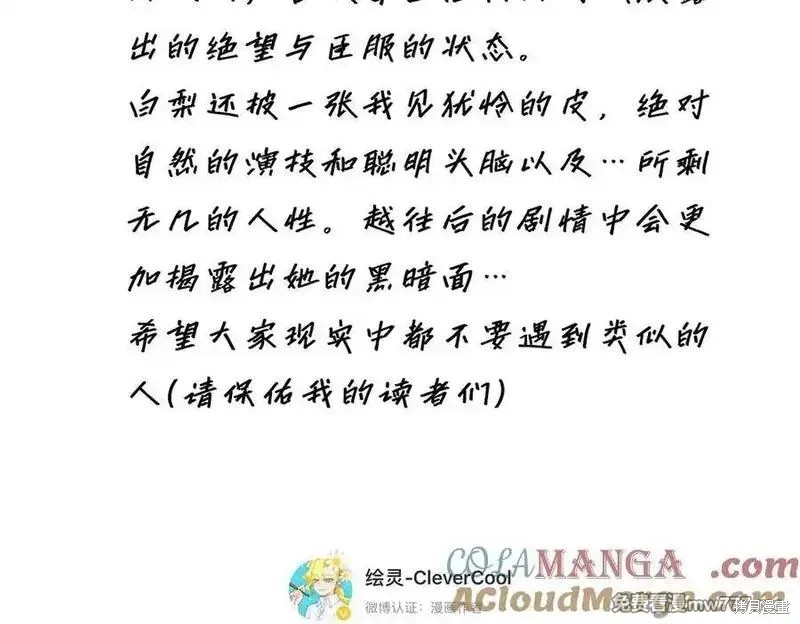 出的绝望与臣服的状态。
白梨还披一张我见犹怜的皮，绝对
自然的演技和聪明头脑以及…所剩
无几的人性。越往后的剧情中会更
加揭露出她的黑暗面…
希望大家现实中都不要遇到类似的
人(请保佑我的读者们)
绘灵-CleverCool
微博认证：漫画作者
COLAMANGA.com
AcloudMerge.com
免费看漫mw77
拷贝漫画